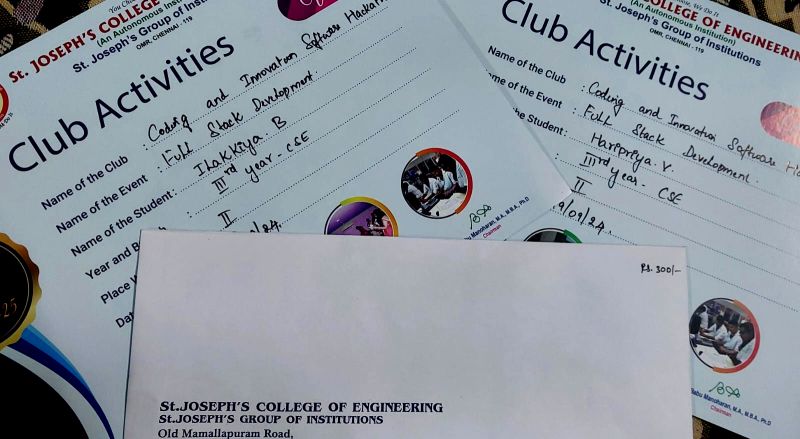 St. JOSEPH'S COLLEGE
(An Autonomous Institution)
St. Joseph's Group of Institutions
OMR, CHENNAI - 119
Club Activities
Name of the Club : Coding and Innovation Software
Name of the Event : Full Stack Development
Name of the Student : Ilakkiya B
IIIrd year - CSE
Year and
Place
II
Babu Manoharan, M.A., M.B.A., Ph.D
Chairman
COLLEGE OF ENGINEERING
(An Autonomous Institution)
St. Joseph's Group of Institutions
OMR, CHENNAI - 119
Club Activities
Name of the Club : Coding and Innovation Software
Name of the Event : Full Stack Development
the Student : Haripriya. V
IIIrd year - CSE
II
/09/24.
Babu Manoharan, M.A., M.B.A., Ph.D
Chairman
Rs. 300/-
St.JOSEPH'S COLLEGE OF ENGINEERING
St.JOSEPH'S GROUP OF INSTITUTIONS
Old Mamallapuram Road,